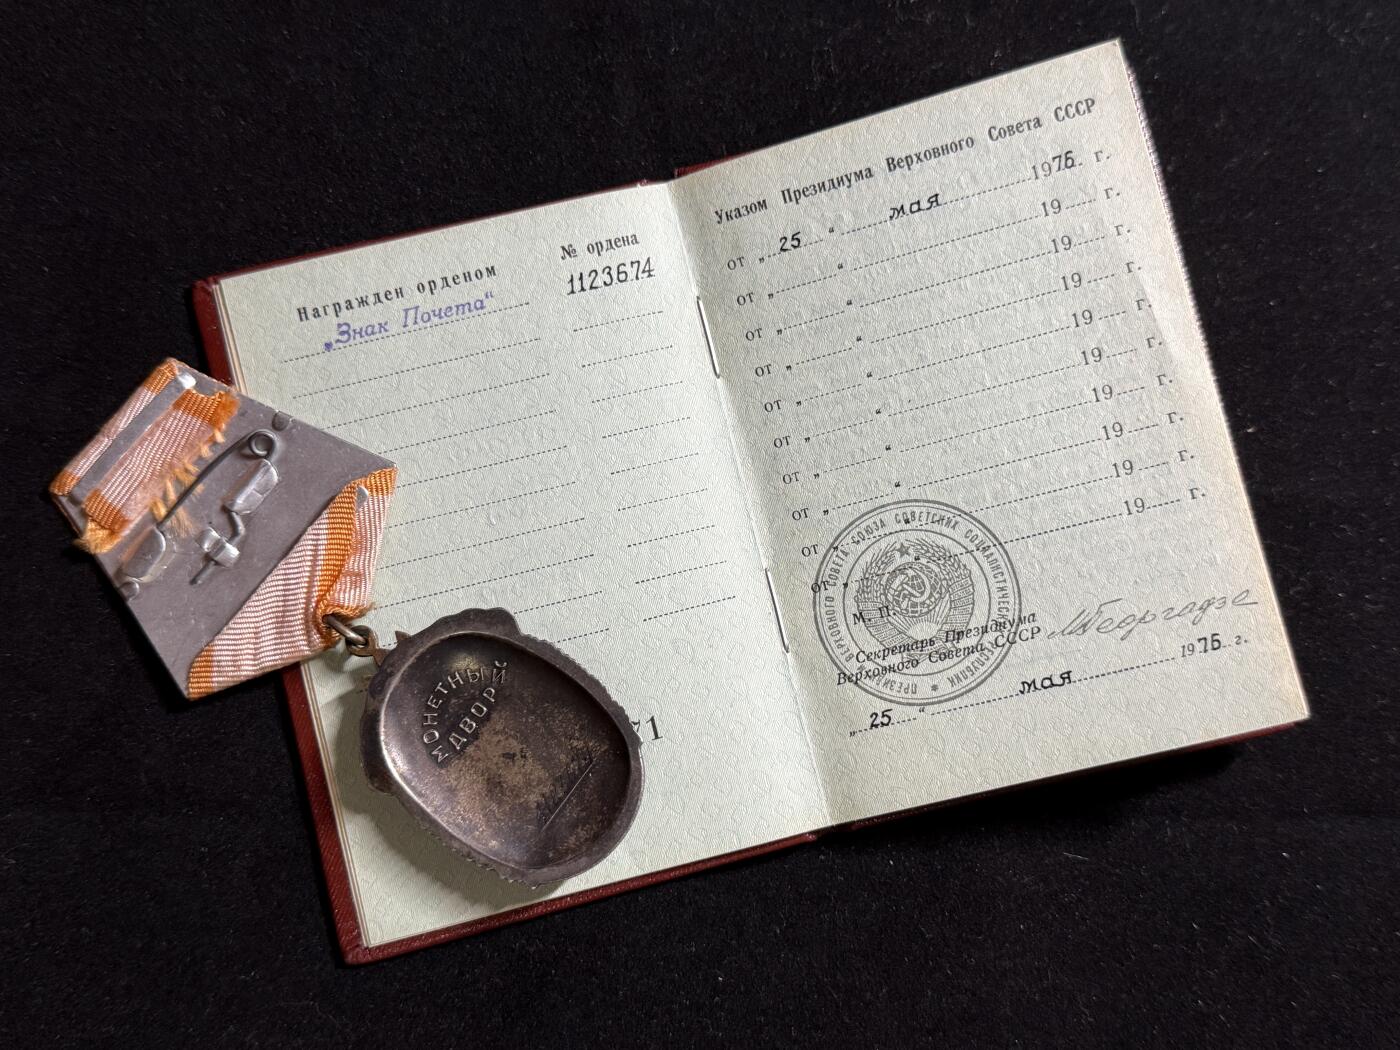 Награжден орденом
№ ордена
„Знак Почета“
1123674
71
Указом Президиума Верховного Совета СССР
от „ 25 “ мая 1976 г.
от „ “ 19 г.
от „ “ 19 г.
от „ “ 19 г.
от „ “ 19 г.
от „ “ 19 г.
от „ “ 19 г.
от „ “ 19 г.
от „ “ 19 г.
от „ “ 19 г.
М. П.
Секретарь Президиума
Верховного Совета СССР
МГеоргадзе
„ 25 “ мая 1976 г.
ПРЕЗИДИУМ ВЕРХОВНОГО СОВЕТА СОЮЗА СОВЕТСКИХ СОЦИАЛИСТИЧЕСКИХ РЕСПУБЛИК
МОНЕТНЫЙ
ДВОР